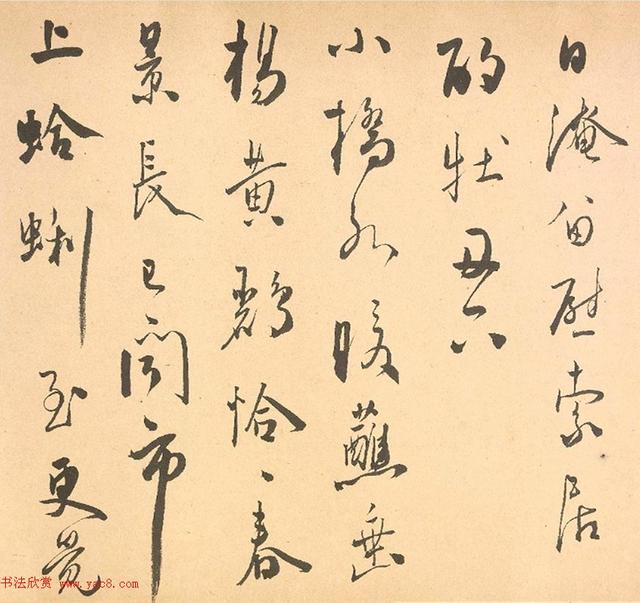 日淹留慰索居
酌牡丹下
小橋水暖蘸垂
楊黄鸝恰々春
景長已聞市
上蛤蜊至更覺
书法欣赏 www.yac8.com